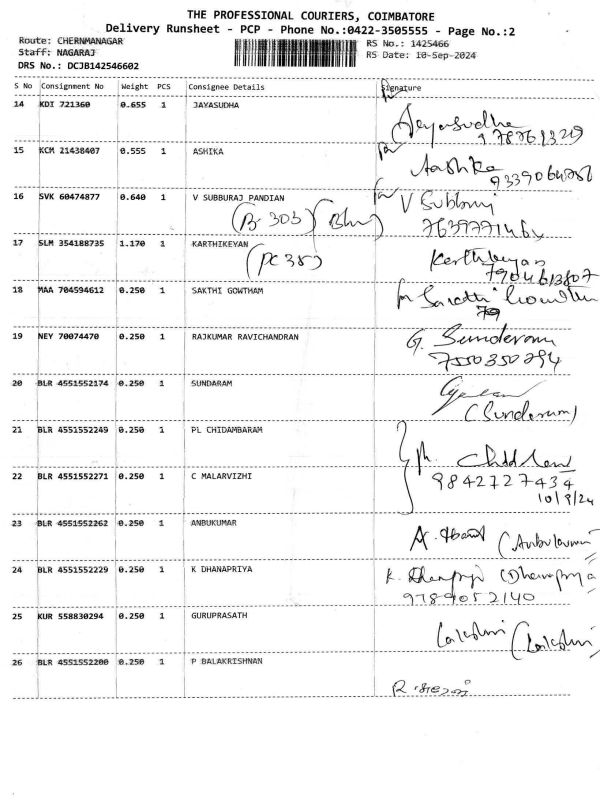 THE PROFESSIONAL COURIERS, COIMBATORE
Delivery Runsheet - PCP - Phone No.:0422-3505555 - Page No.:2
Route: CHERNMANAGAR RS No.: 1425466
Staff: NAGARAJ RS Date: 10-Sep-2024
DRS No.: DCJB142546602
S No Consignment No Weight PCS Consignee Details Signature
14 KDI 721360 0.655 1 JAYASUDHA Jeyasudha
15 KCM 21438407 0.555 1 ASHIKA Aashika
16 SVK 60474877 0.640 1 V SUBBURAJ PANDIAN V Subburaj
(B-303)
17 SLM 354188735 1.170 1 KARTHIKEYAN Karthikeyan
(PC 385) 7904613807
18 MAA 704594612 0.250 1 SAKTHI GOWTHAM
19 NEY 70074470 0.250 1 RAJKUMAR RAVICHANDRAN G. Sunderam
7550350294
20 BLR 4551552174 0.250 1 SUNDARAM
(Sunderam)
21 BLR 4551552249 0.250 1 PL CHIDAMBARAM
22 BLR 4551552271 0.250 1 C MALARVIZHI 9842727434
10/9/24
23 BLR 4551552262 0.250 1 ANBUKUMAR
24 BLR 4551552229 0.250 1 K DHANAPRIYA K. (Dhanapriya
9789052140
25 KUR 558830294 0.250 1 GURUPRASATH Lakshmi (Lakshmi)
26 BLR 4551552200 0.250 1 P BALAKRISHNAN